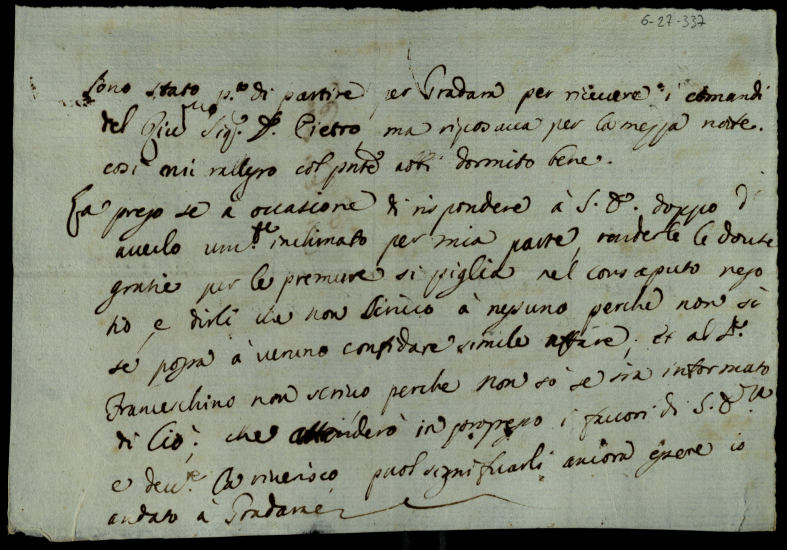 6-27-337
Sono stato p.º di partire per Gradara per ricevere i comandi
del Sig.r D. Pietro, ma riposava per la mezza notte.
così mi rallegro col dormito bene.
La prego se à occasione di rispondere à S. E. doppo d'
averlo um.te inclinato per mia parte, renderle le dovute
gratie per le premure si piglia nel consaputo nego
tio, e dirli che non scrivo à nessuno perche non sò
se possa à veruno confidare simile affare, et al S.r
Franceschino non scrivo perche non sò se sia informato
di Ciò, che attenderò in proposito i favori di S. E.
e La riverisco puol significarli ancora essere io
andato à Gradara